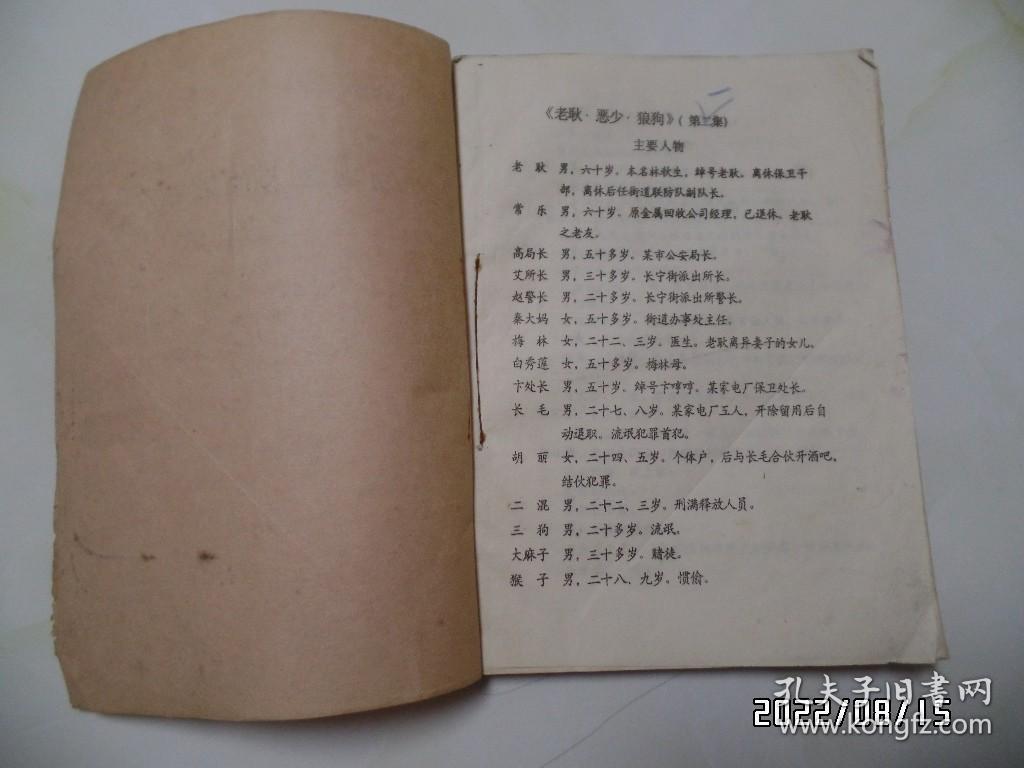 《老耿·恶少·狼狗》(第二集)
主要人物
老 耿 男,六十岁。本名林秋生,绰号老耿。离休保卫干
部,离休后任街道联防队副队长。
常 乐 男,六十岁。原金属回收公司经理,已退休。老耿
之老友。
高局长 男,五十多岁。某市公安局长。
艾所长 男,三十多岁。长宁街派出所长。
赵警长 男,二十多岁。长宁街派出所警长。
秦大妈 女,五十多岁。街道办事处主任。
梅 林 女,二十二、三岁。医生。老耿离异妻子的女儿。
白秀莲 女,五十多岁。梅林母。
卞处长 男,五十岁。绰号卞哼哼。某家电厂保卫处长。
长 毛 男,二十七、八岁。某家电厂工人,开除留用后自
动退职。流氓犯罪首犯。
胡 丽 女,二十四、五岁。个体户,后与长毛合伙开酒吧,
结伙犯罪。
二 混 男,二十二、三岁。刑满释放人员。
三 狗 男,二十多岁。流氓。
大麻子 男,三十多岁。赌徒。
猴 子 男,二十八、九岁。惯偷。
孔夫子旧书网
2022/08/15
www.kongfz.com